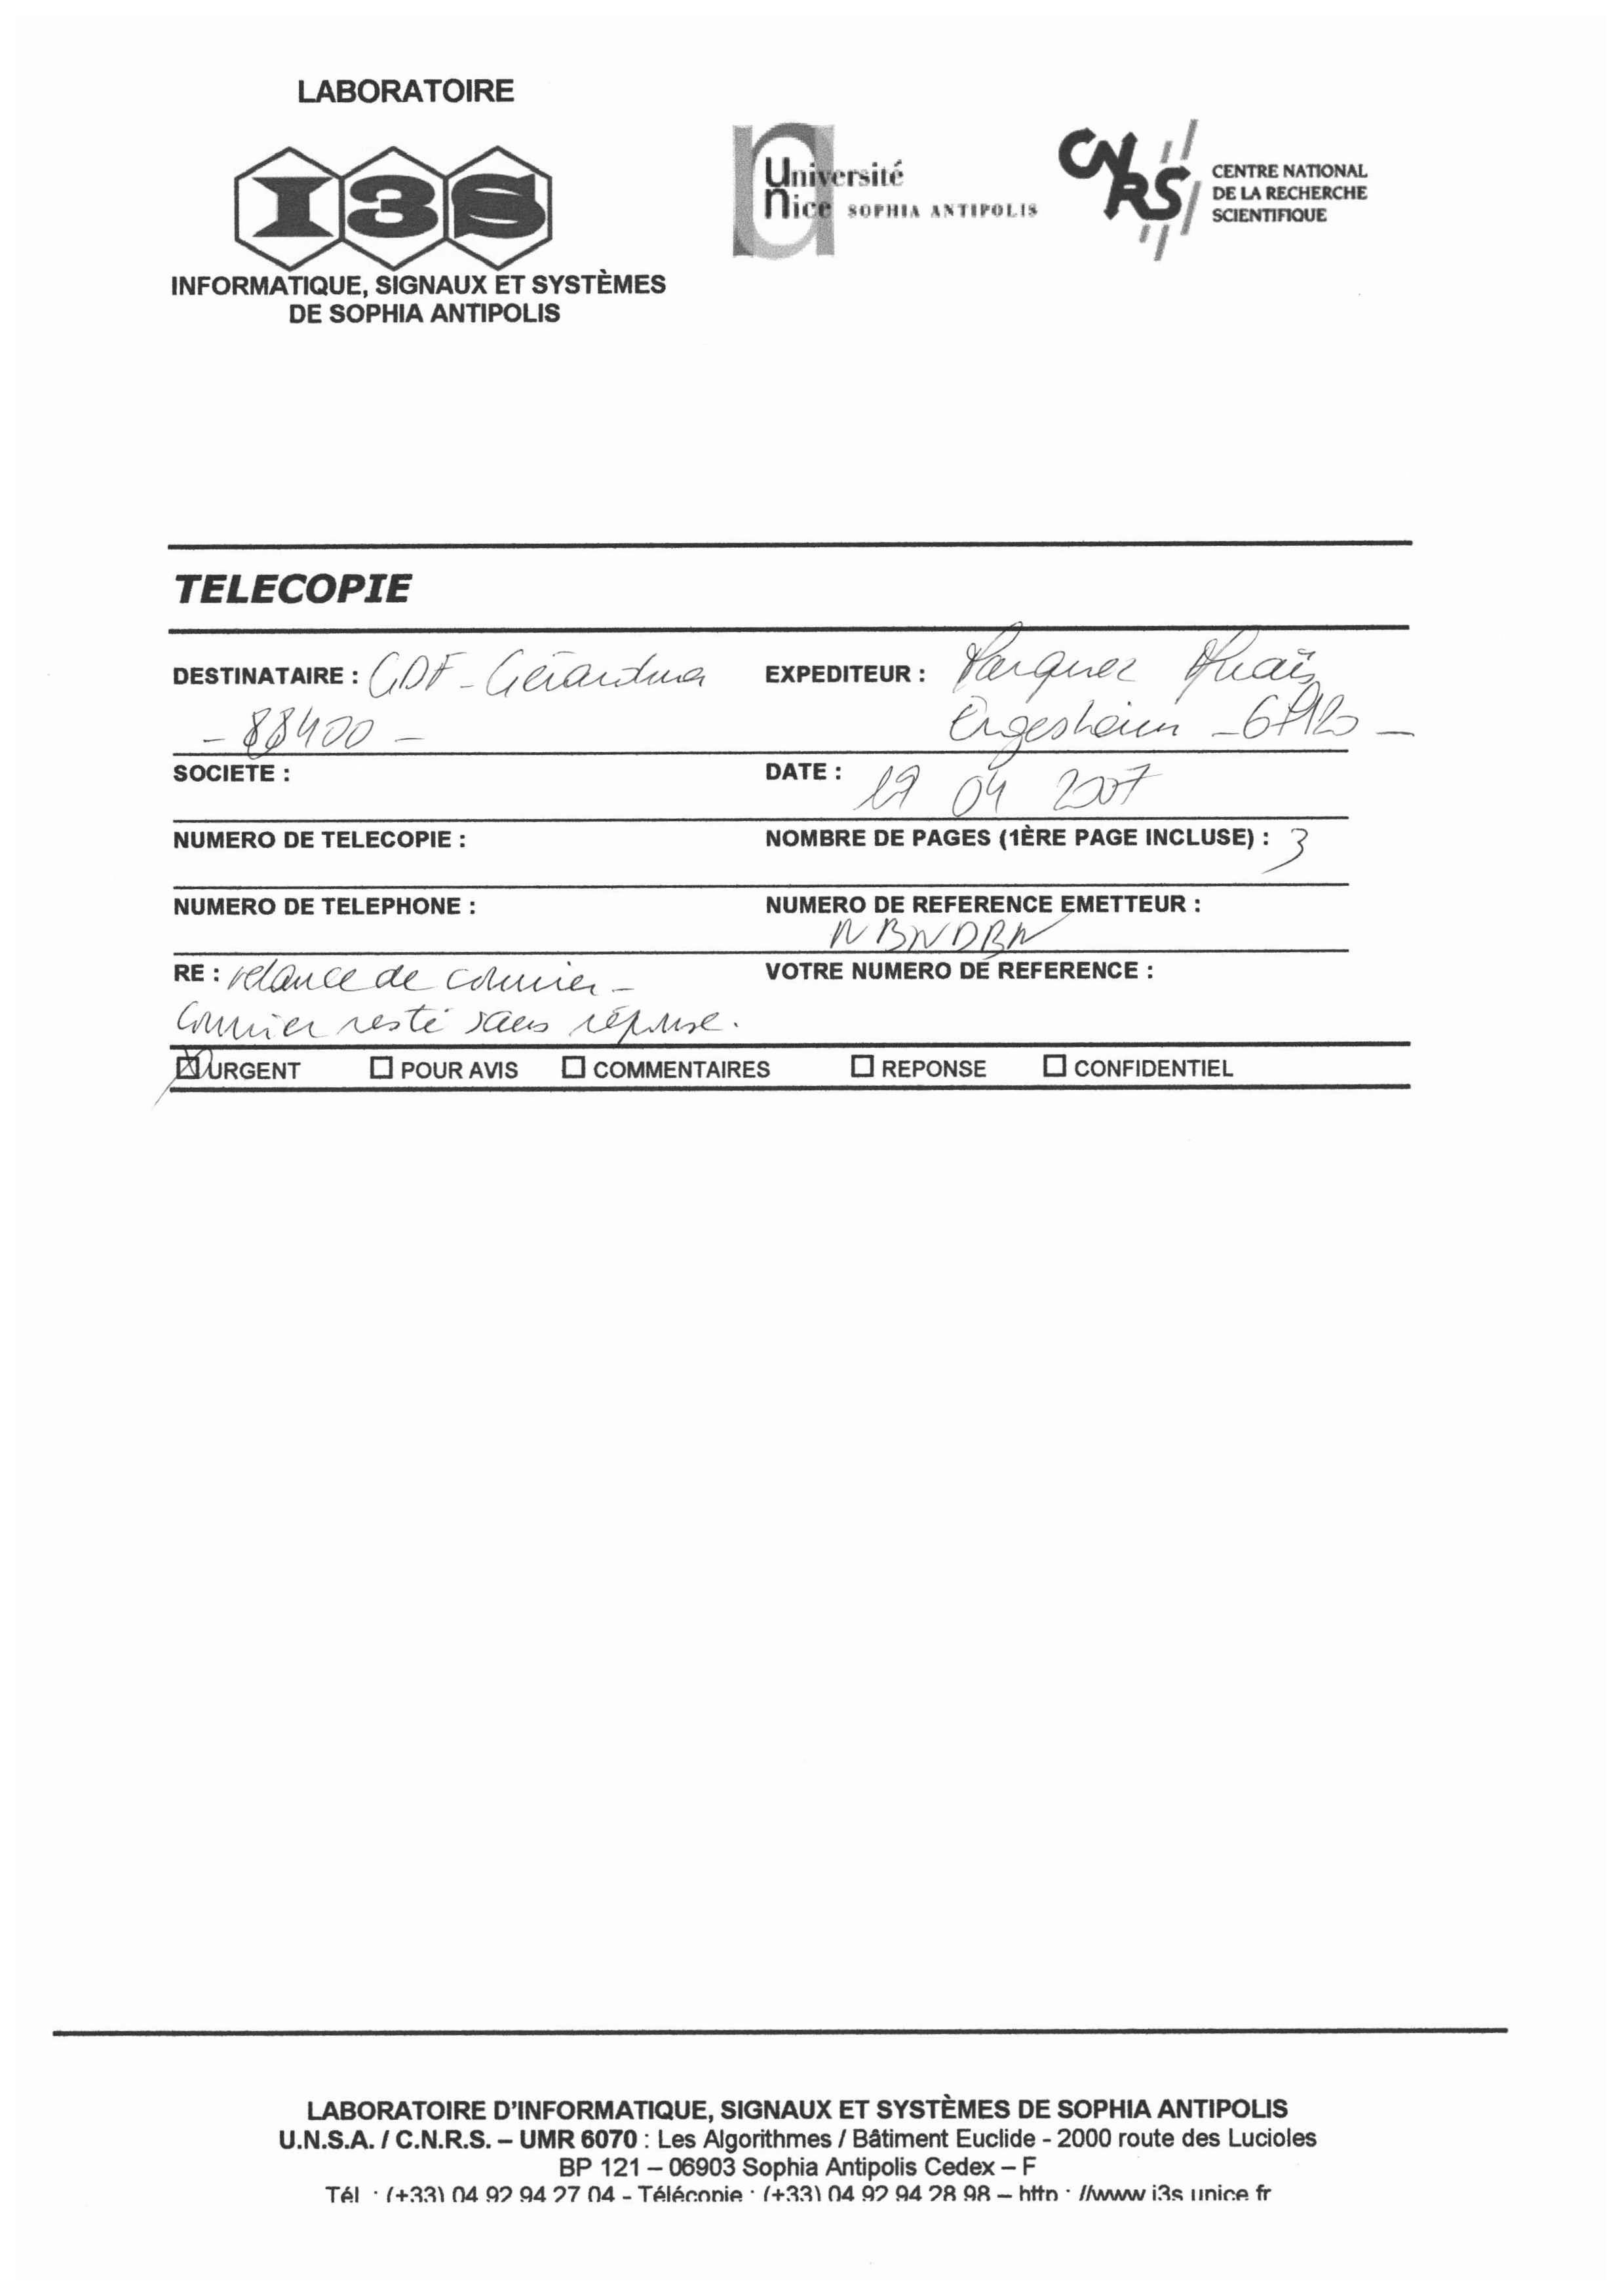 LABORATOIRE
I3S
INFORMATIQUE, SIGNAUX ET SYSTÈMES
DE SOPHIA ANTIPOLIS
Université
Nice SOPHIA ANTIPOLIS
CNRS
CENTRE NATIONAL
DE LA RECHERCHE
SCIENTIFIQUE
TELECOPIE
DESTINATAIRE : GDF - Gérardmer
- 88400 -
EXPEDITEUR :
Ergersheim - 67120 -
SOCIETE :
DATE : 19 04 2007
NUMERO DE TELECOPIE :
NOMBRE DE PAGES (1ÈRE PAGE INCLUSE) : 3
NUMERO DE TELEPHONE :
NUMERO DE REFERENCE EMETTEUR :
NBNDBN
RE : relance de courrier -
Courrier resté sans réponse.
VOTRE NUMERO DE REFERENCE :
URGENT POUR AVIS COMMENTAIRES REPONSE CONFIDENTIEL
LABORATOIRE D'INFORMATIQUE, SIGNAUX ET SYSTÈMES DE SOPHIA ANTIPOLIS
U.N.S.A. / C.N.R.S. – UMR 6070 : Les Algorithmes / Bâtiment Euclide - 2000 route des Lucioles
BP 121 – 06903 Sophia Antipolis Cedex – F
Tél : (+33) 04 92 94 27 04 - Télécopie : (+33) 04 92 94 28 98 – http : //www i3s unice fr